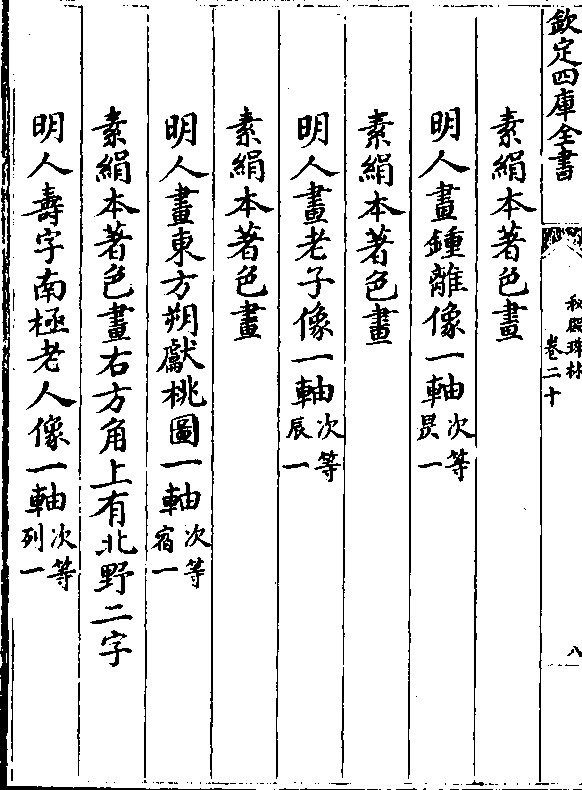 欽定四庫全書
秘殿珠林
卷二十
八
素絹本著色畫
明人畫鍾離像一軸次等
昃一
素絹本著色畫
明人畫老子像一軸次等
辰一
素絹本著色畫
明人畫東方朔獻桃圖一軸次等
宿一
素絹本著色畫右方角上有北野二字
明人壽字南極老人像一軸次等
列一